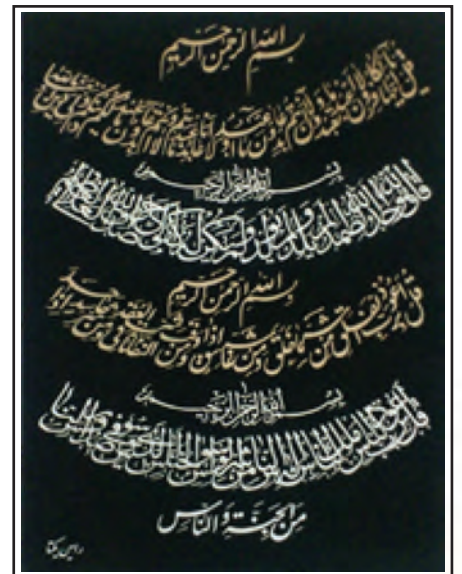 بسم الله الرحمن الرحيم
قل يا أيها الكافرون لا أعبد ما تعبدون ولا أنتم عابدون ما أعبد ولا أنا عابد ما عبدتم ولا أنتم عابدون ما أعبد لكم دينكم ولي دين
بسم الله الرحمن الرحيم
قل هو الله أحد الله الصمد لم يلد ولم يولد ولم يكن له كفوا أحد
بسم الله الرحمن الرحيم
قل أعوذ برب الفلق من شر ما خلق ومن شر غاسق إذا وقب ومن شر النفاثات في العقد ومن شر حاسد إذا حسد
بسم الله الرحمن الرحيم
قل أعوذ برب الناس ملك الناس إله الناس من شر الوسواس الخناس الذي يوسوس في صدور الناس
من الجنة والناس